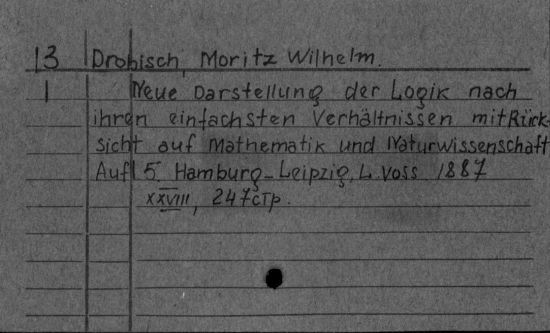 13 Drobisch, Moritz Wilhelm.
1 Neue Darstellung der Logik nach
ihren einfachsten Verhältnissen mit Rück-
sicht auf Mathematik und Naturwissenschaft
Aufl 5. Hamburg-Leipzig, L. Voss 1887
XXVIII, 247 стр.